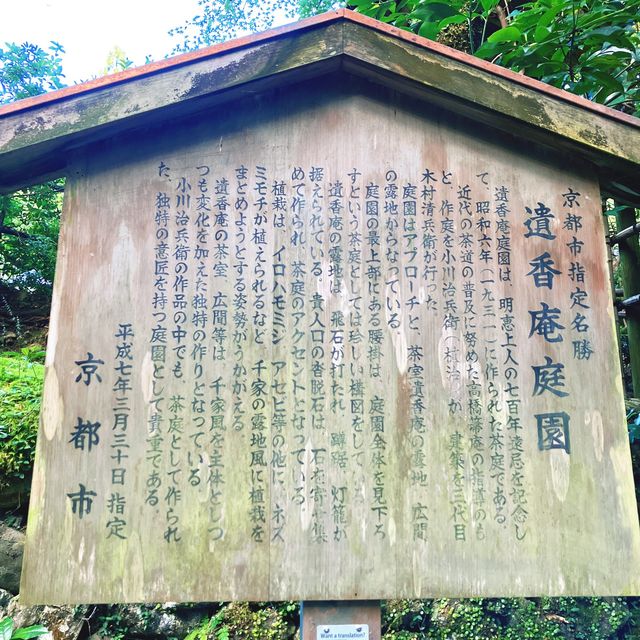 京都市指定名勝
遺香庵庭園
遺香庵庭園は、明恵上人の七百年遠忌を記念し
て、昭和六年（一九三一）に作られた茶庭である。
近代の茶道の普及に努めた高橋箒庵の指導のも
と、作庭を小川治兵衛（植治）が、建築を三代目
木村清兵衛が行った。
庭園はアプローチと、茶室遺香庵の露地、広間
の露地からなっている。
庭園の最上部にある腰掛は、庭園全体を見下ろ
すという茶庭としては珍しい構図をしている。
遺香庵の露地は、飛石が打たれ、蹲踞、灯籠が
据えられている。貴人口の沓脱石は、石を寄せ集
めて作られ、茶庭のアクセントとなっている。
植栽は、イロハモミジ、アセビ等の他に、ネズ
ミモチが植えられるなど、千家の露地風に植栽を
まとめようとする姿勢がうかがえる。
遺香庵の茶室、広間等は、千家風を主体としつ
つも変化を加えた独特の作りとなっている。
小川治兵衛の作品の中でも、茶庭として作られ
た、独特の意匠を持つ庭園として貴重である。
平成七年三月三十日 指定
京都市
Want a translation?